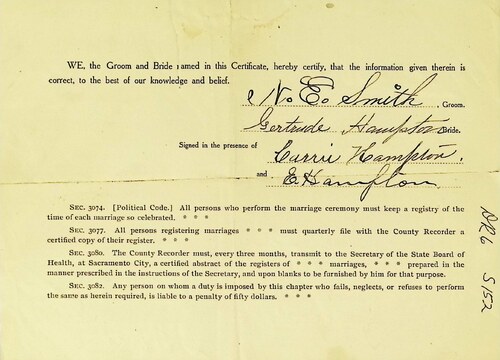 WE, the Groom and Bride named in this Certificate, hereby certify, that the information given therein is
correct, to the best of our knowledge and belief.
N. E. Smith , Groom.
Gertrude Hampton Bride.
Signed in the presence of
Carrie Hampton.
and
E Hampton
SEC. 3074. [Political Code.] All persons who perform the marriage ceremony must keep a registry of the
time of each marriage so celebrated. * * *
SEC. 3077. All persons registering marriages * * * must quarterly file with the County Recorder a
certified copy of their register. * * *
SEC. 3080. The County Recorder must, every three months, transmit to the Secretary of the State Board of
Health, at Sacramento City, a certified abstract of the registers of * * * marriages, * * * prepared in the
manner prescribed in the instructions of the Secretary, and upon blanks to be furnished by him for that purpose.
SEC. 3082. Any person on whom a duty is imposed by this chapter who fails, neglects, or refuses to perform
the same as herein required, is liable to a penalty of fifty dollars. * * *
S152